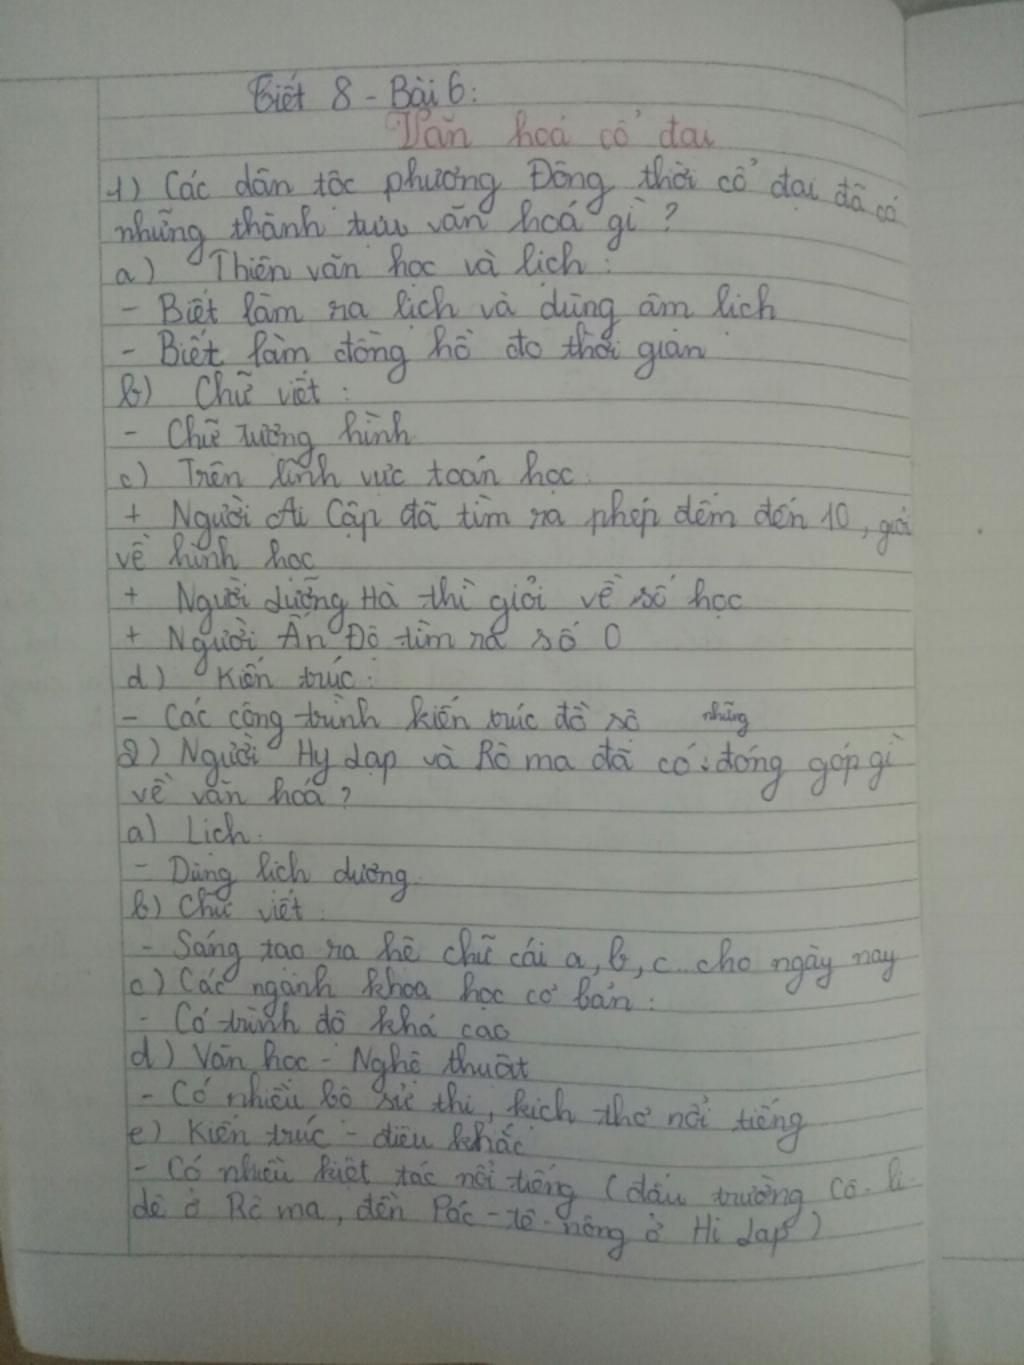 Tiết 8 - Bài 6:
Văn hoá cổ đại
1) Các dân tộc phương Đông thời cổ đại đã có
những thành tựu văn hoá gì?
a) Thiên văn học và lịch:
- Biết làm ra lịch và dùng âm lịch
- Biết làm đồng hồ đo thời gian
b) Chữ viết:
- Chữ tượng hình
c) Trên lĩnh vực toán học:
+ Người Ai Cập đã tìm ra phép đếm đến 10, giỏi
về hình học
+ Người Lưỡng Hà thì giỏi về số học
+ Người Ấn Độ tìm ra số 0
d) Kiến trúc:
- Các công trình kiến trúc đồ sộ
2) Người Hy Lạp và Rô ma đã có những đóng góp gì
về văn hoá?
a) Lịch:
- Dùng lịch dương
b) Chữ viết:
- Sáng tạo ra hệ chữ cái a, b, c... cho ngày nay
c) Các ngành khoa học cơ bản:
- Có trình độ khá cao
d) Văn học - Nghệ thuật
- Có nhiều bộ sử thi, kịch thơ nổi tiếng
e) Kiến trúc - điêu khắc
- Có nhiều kiệt tác nổi tiếng (đấu trường Cô-li-
dê ở Rô ma, đền Pác-tê-nông ở Hi Lạp)